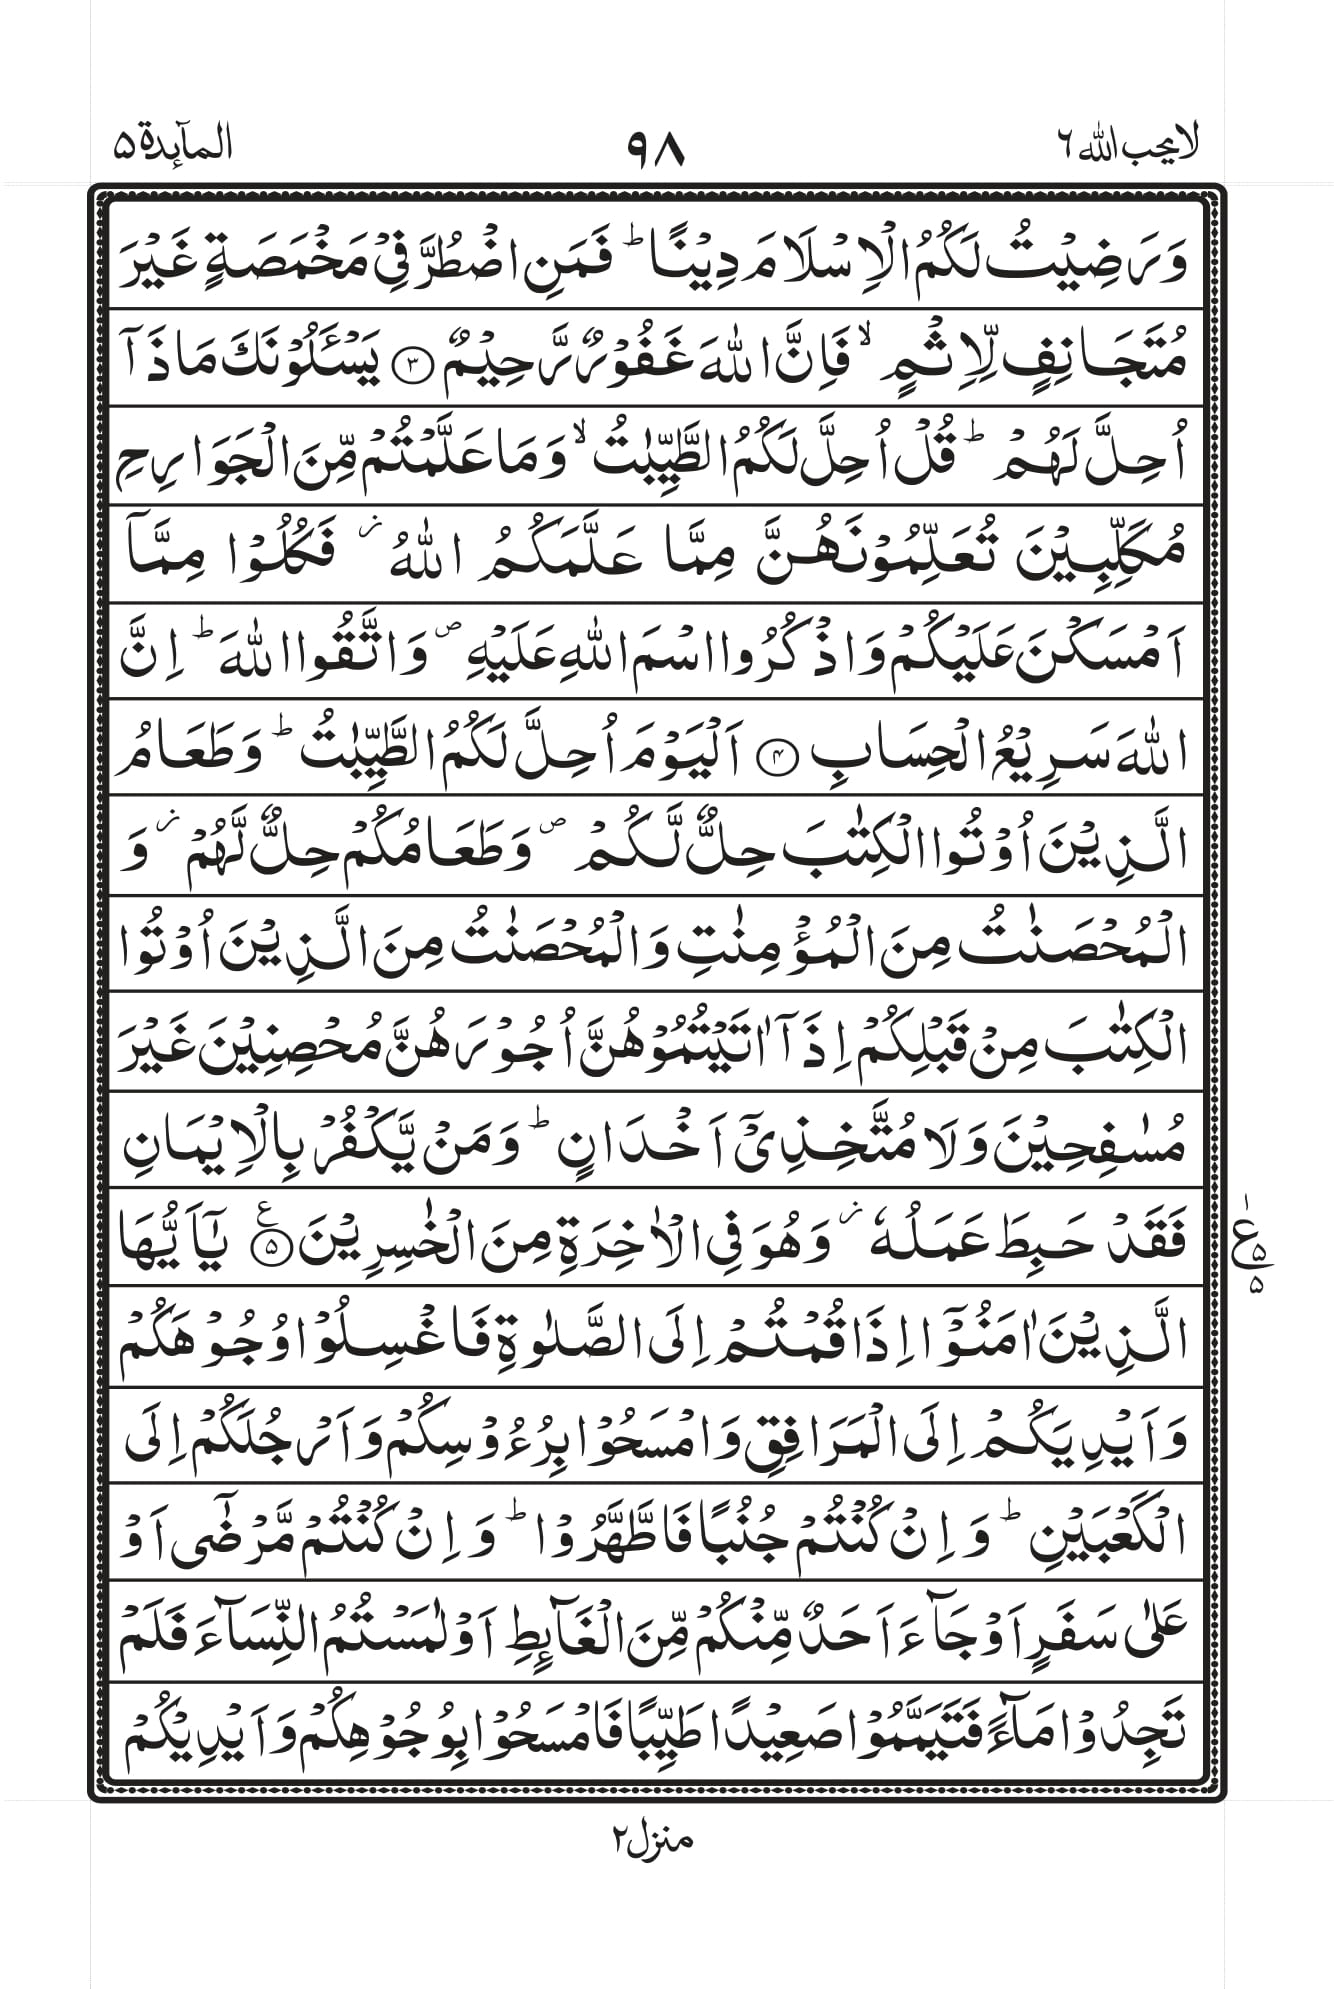 لا یحب اللہ ۶ ۹۸ المآئدة ۵
وَرَضِیْتُ لَكُمُ الْاِسْلَامَ دِیْنًا ؕ فَمَنِ اضْطُرَّ فِیْ مَخْمَصَةٍ غَیْرَ
مُتَجَانِفٍ لِّاِثْمٍ ۙ فَاِنَّ اللّٰهَ غَفُوْرٌ رَّحِیْمٌ ﴿۳﴾ یَسْـَٔلُوْنَكَ مَا ذَاۤ
اُحِلَّ لَهُمْ ؕ قُلْ اُحِلَّ لَكُمُ الطَّیِّبٰتُ ۙ وَمَا عَلَّمْتُمْ مِّنَ الْجَوَارِحِ
مُكَلِّبِیْنَ تُعَلِّمُوْنَهُنَّ مِمَّا عَلَّمَكُمُ اللّٰهُ ؗ فَكُلُوْا مِمَّاۤ
اَمْسَكْنَ عَلَیْكُمْ وَاذْكُرُوا اسْمَ اللّٰهِ عَلَیْهِ ۪ وَاتَّقُوا اللّٰهَ ؕ اِنَّ
اللّٰهَ سَرِیْعُ الْحِسَابِ ﴿۴﴾ اَلْیَوْمَ اُحِلَّ لَكُمُ الطَّیِّبٰتُ ؕ وَطَعَامُ
الَّذِیْنَ اُوْتُوا الْكِتٰبَ حِلٌّ لَّكُمْ ۪ وَطَعَامُكُمْ حِلٌّ لَّهُمْ ؗ وَ
الْمُحْصَنٰتُ مِنَ الْمُؤْمِنٰتِ وَالْمُحْصَنٰتُ مِنَ الَّذِیْنَ اُوْتُوا
الْكِتٰبَ مِنْ قَبْلِكُمْ اِذَاۤ اٰتَیْتُمُوْهُنَّ اُجُوْرَهُنَّ مُحْصِنِیْنَ غَیْرَ
مُسٰفِحِیْنَ وَلَا مُتَّخِذِیْۤ اَخْدَانٍ ؕ وَمَنْ یَّكْفُرْ بِالْاِیْمَانِ
فَقَدْ حَبِطَ عَمَلُهٗ ؗ وَهُوَ فِی الْاٰخِرَةِ مِنَ الْخٰسِرِیْنَ ﴿۵﴾ ع یٰۤاَیُّهَا
ع ۱ ۵ ۵
الَّذِیْنَ اٰمَنُوْۤا اِذَا قُمْتُمْ اِلَی الصَّلٰوةِ فَاغْسِلُوْا وُجُوْهَكُمْ
وَاَیْدِیَكُمْ اِلَی الْمَرَافِقِ وَامْسَحُوْا بِرُءُوْسِكُمْ وَاَرْجُلَكُمْ اِلَی
الْكَعْبَیْنِ ؕ وَ اِنْ كُنْتُمْ جُنُبًا فَاطَّهَّرُوْا ؕ وَ اِنْ كُنْتُمْ مَّرْضٰۤی اَوْ
عَلٰی سَفَرٍ اَوْ جَآءَ اَحَدٌ مِّنْكُمْ مِّنَ الْغَآئِطِ اَوْ لٰمَسْتُمُ النِّسَآءَ فَلَمْ
تَجِدُوْا مَآءً فَتَیَمَّمُوْا صَعِیْدًا طَیِّبًا فَامْسَحُوْا بِوُجُوْهِكُمْ وَاَیْدِیْكُمْ
منزل ۲